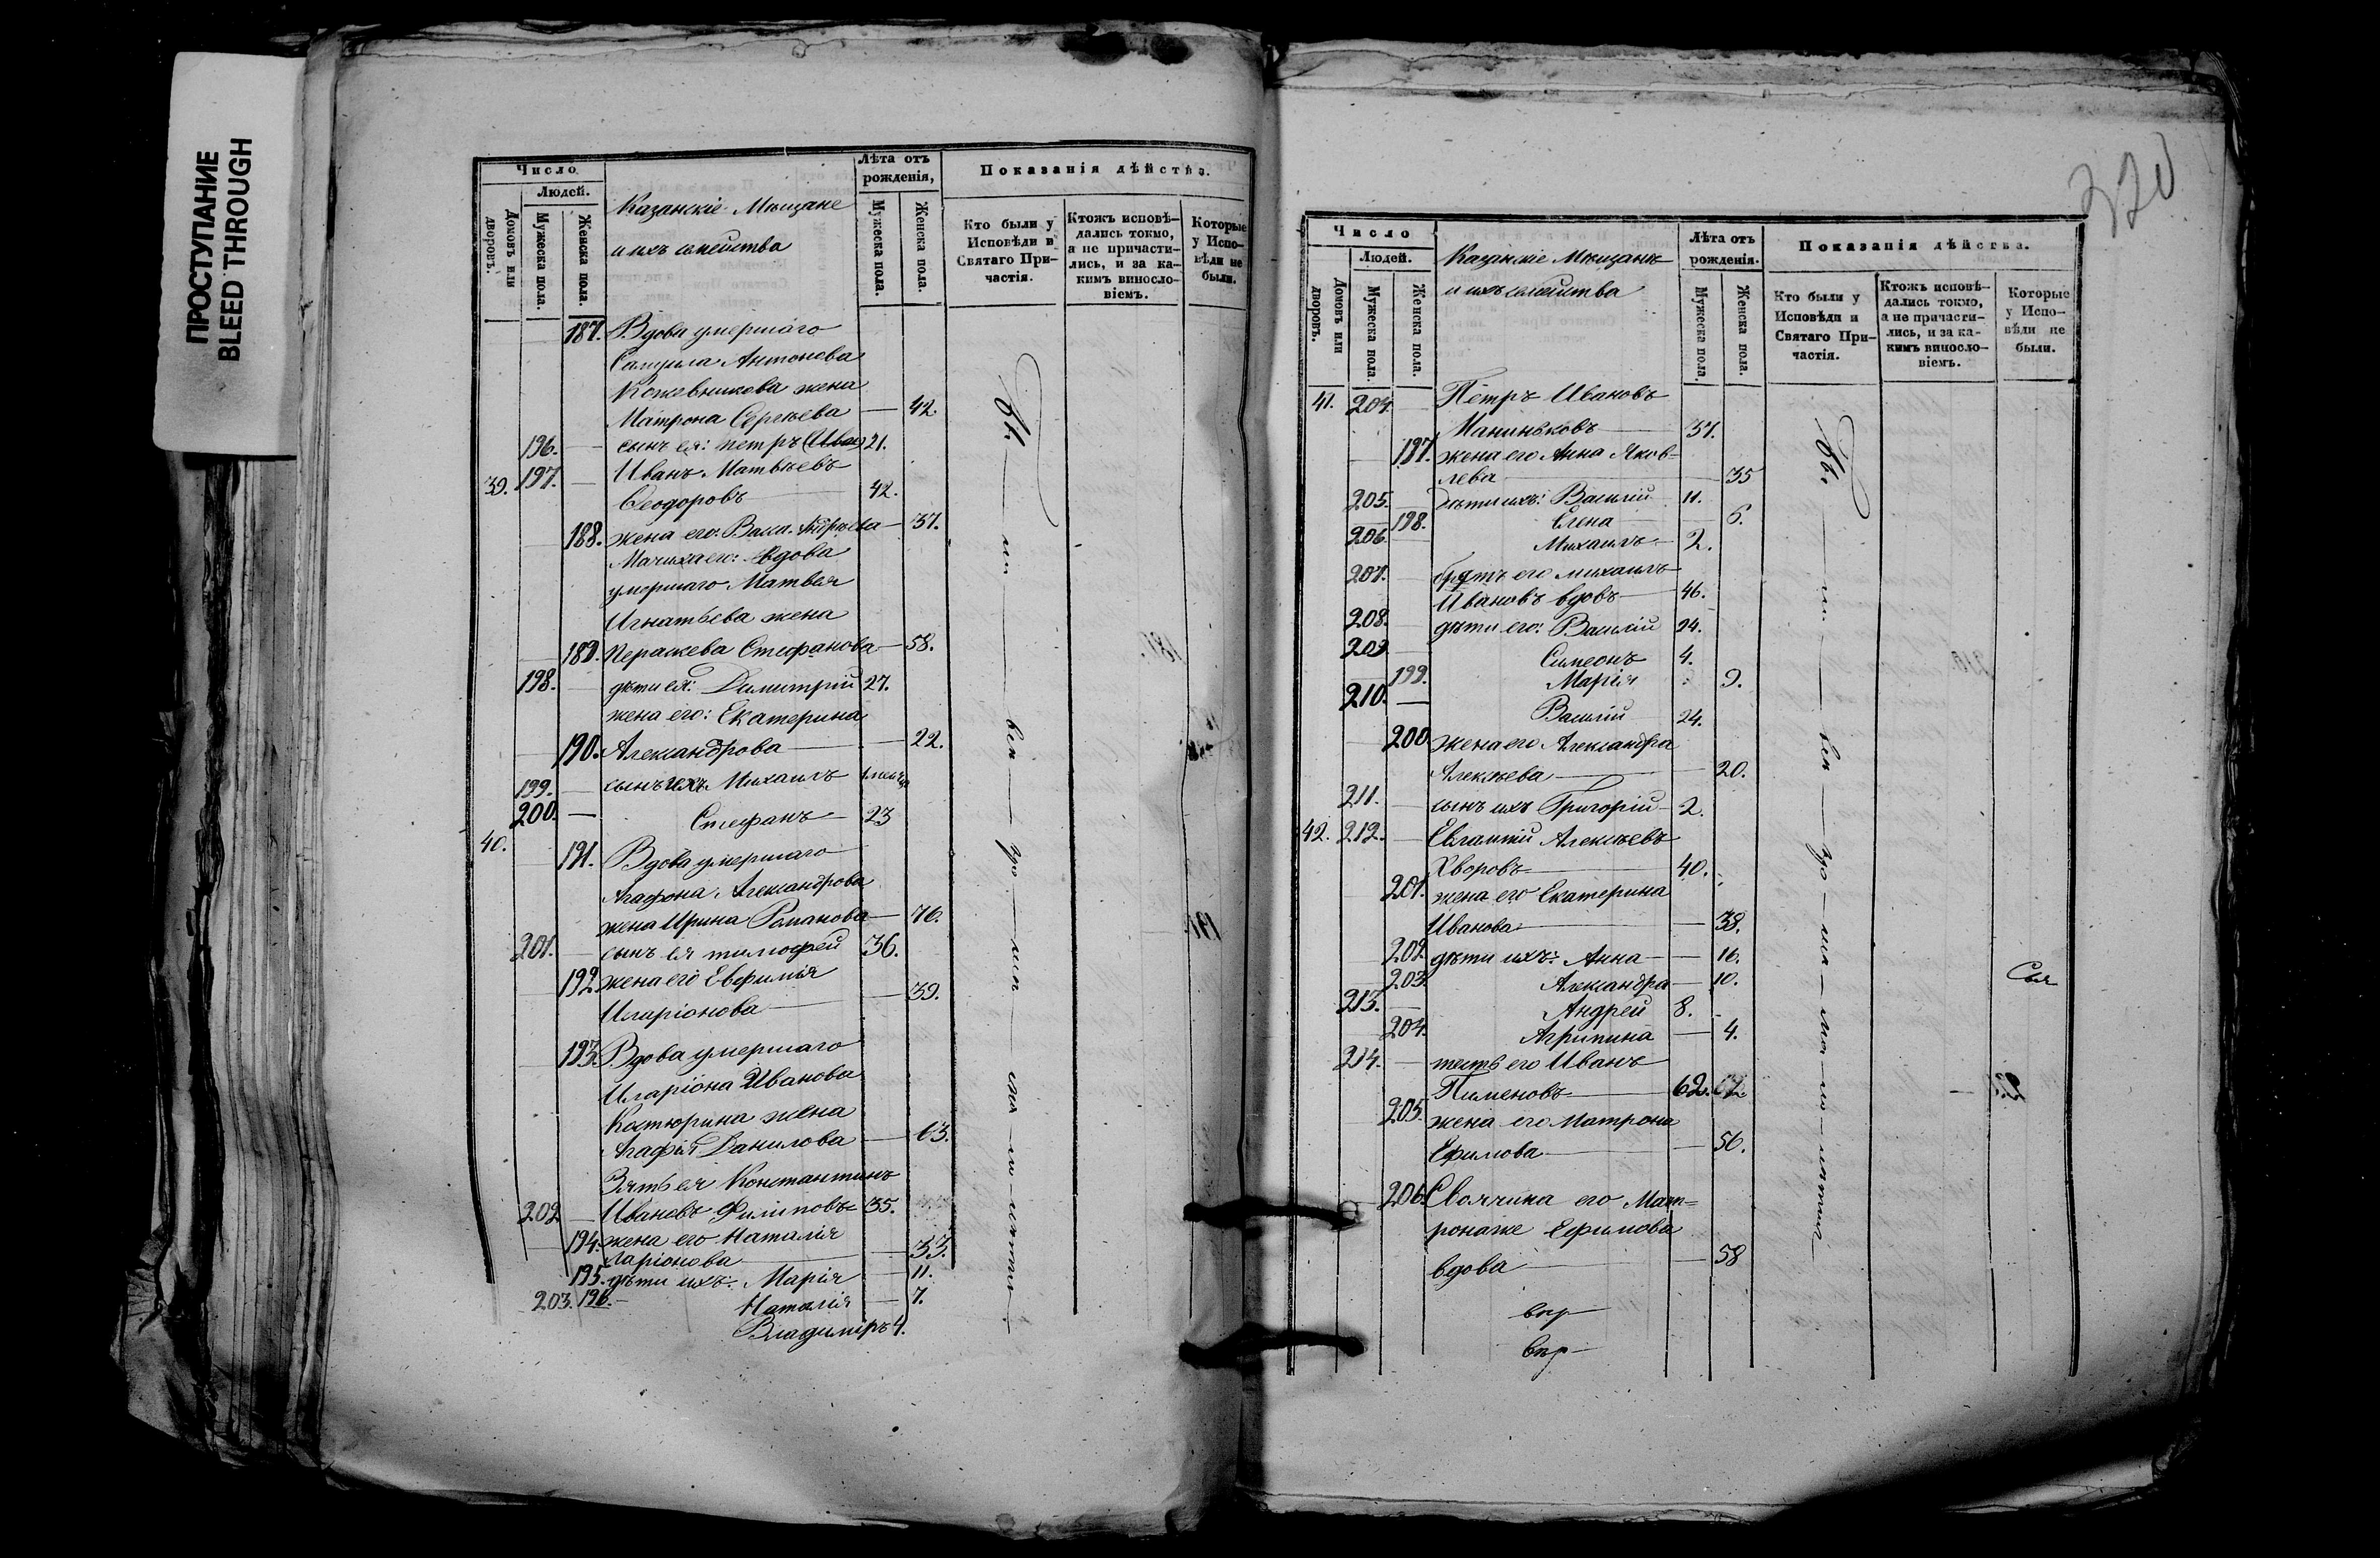 ПРОСТУПАНИЕ
BLEED THROUGH
Число
Людей.
Домовъ или дворовъ.
Мужеска пола.
Женска пола.
Казанскіе Мѣщане
и ихъ семейства
Лѣта отъ рожденія,
Мужеска пола.
Женска пола.
Показанія дѣйства.
Кто были у Исповѣди и Святаго При-
частія.
Ктожъ исповѣ-
дались токмо,
а не причасти-
лись, и за ка-
кимъ винносло-
віемъ.
Которые
у Испо-
вѣди не
были.
187. Вдова умершаго
Самуила Антонова
Кожевникова жена
Матрона Сергѣева — 42.
196. — сынъ ея: Петръ 21.
39. 197. — Иванъ Матвѣевъ
Ѳеодоровъ — 42.
188. жена его: — 37.
Мачиха его: Вдова
умершаго Матвея
Игнатьева жена
189. Параскева Стефанова — 58.
198. — дѣти ея: Димитрій 27.
жена его: Екатерина
190. Александрова — 22.
199. — сынъ ихъ Михаилъ
200. — Стефанъ — 23
40. 191. Вдова умершаго
Агафона Александрова
жена Ирина Романова — 76.
201. — сынъ ея тимофей 36.
192. жена его Евфимія
Иларіонова — 39.
193. Вдова умершаго
Иларіона Иванова
Костюрина жена
Агафія Данилова — 63.
Зять ея Константинъ
202. — Ивановъ Филиповъ 35.
194. жена его Наталія
Ларіонова — 33.
195. дѣти ихъ: Марія — 11.
203. 196. — Наталія — 7.
Владиміръ 4.
320
Число
Людей.
Домовъ или дворовъ.
Мужеска пола.
Женска пола.
Казанскіе Мѣщане
и ихъ семейства
Лѣта отъ рожденія.
Мужеска пола.
Женска пола.
Показанія дѣйства.
Кто были у
Исповѣди и
Святаго При-
частія.
Ктожъ исповѣ-
дались токмо,
а не причасти-
лись, и за ка-
кимъ винносло-
віемъ.
Которые
у Испо-
вѣди не
были.
41. 204. — Петръ Ивановъ
Маниньковъ — 37.
197. жена его Анна Яков-
лева — 35
205. дѣти ихъ: Василій 11.
198. Елена — 6.
206. Михаилъ — 2.
207. — братъ его михаилъ
Ивановъ вдовъ — 46.
208. дѣти его: Василій 24.
209. Симеонъ 4.
199. Марія 9.
210. — Василій 24.
200. жена его Александра
Алексѣева — 20.
211. — сынъ ихъ Григорій — 2.
42. 212. — Евлампій Алексѣевъ
Хворовъ — 40.
201. жена его Екатерина
Иванова — 38.
202. дѣти ихъ: Анна — 16.
203. Александра — 10.
213. — Андрей 8.
204. Агрипина — 4.
214. — тесть его Иванъ
Пименовъ — 62.
205. жена его Матрона
Ефимова — 56.
206. Своячина его Мат-
ронаже Ефимова
вдова — 58